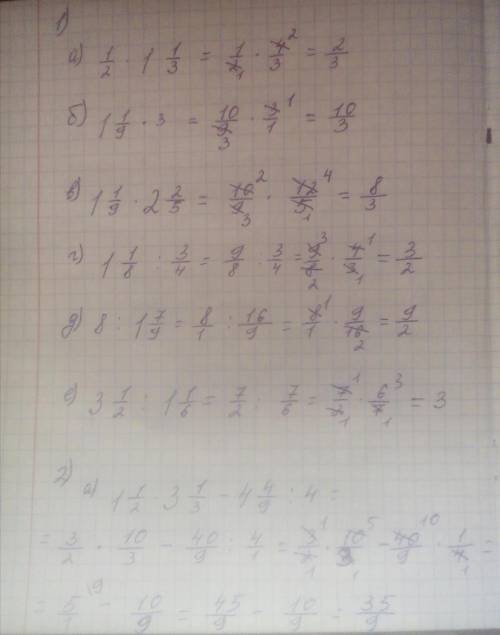 1)
а) 1/2 · 1 1/3 = 1/2₁ · 4²/3 = 2/3
б) 1 1/9 · 3 = 10/9₃ · 3¹/1 = 10/3
в) 1 1/9 · 2 2/5 = 10²/9₃ · 12⁴/5₁ = 8/3
г) 1 1/8 : 3/4 = 9/8 · 3/4 = 9³/8₂ · 4¹/3₁ = 3/2
д) 8 : 1 7/9 = 8/1 : 16/9 = 8¹/1 · 9/16₂ = 9/2
е) 3 1/2 : 1 1/6 = 7/2 : 7/6 = 7¹/2₁ · 6³/7₁ = 3
2)
а) 1 1/2 · 3 1/3 - 4 4/9 : 4 =
= 3/2 · 10/3 - 40/9 : 4/1 = 3¹/2₁ · 10⁵/3₁ - 40¹⁰/9 · 1/4₁ =
= 5/1 ⁹ - 10/9 = 45/9 - 10/9 = 35/9